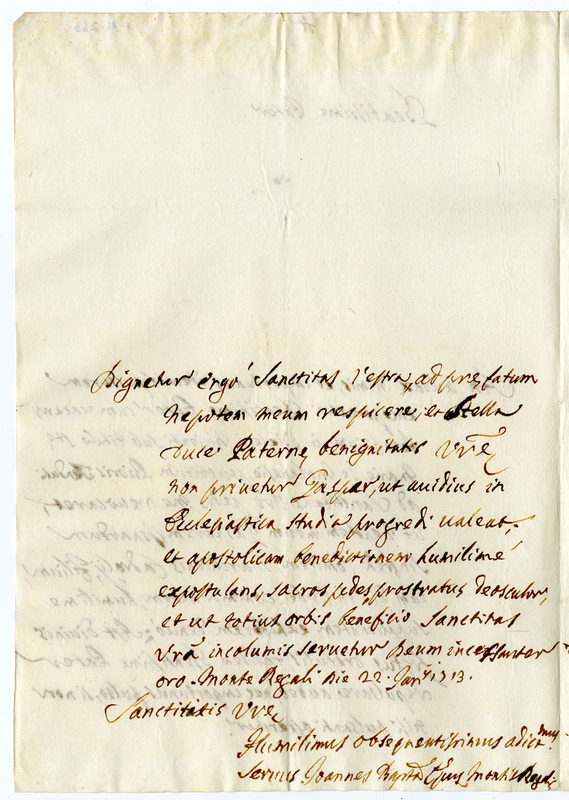 Dignetur ergò Sanctitas Vestra, ad præfatum
nepotem meum respicere, et Stella
duce Paternę benignitatis Vrę
non privetur Gaspar, ut avidius in
Ecclesiastica studia progredi valeat,
et apostolicam benedictionem humilimè
expostulans, sacros pedes prostratus deosculor,
et ut totius orbis beneficio Sanctitas
Vrā incolumis servetur Deum incessanter
oro. Monte Regali die 22. Janrÿ 1713.
Sanctitatis Vrę
Humilimus obsequentissimus
Servus Joannes Baptā Epūs Montis Regal